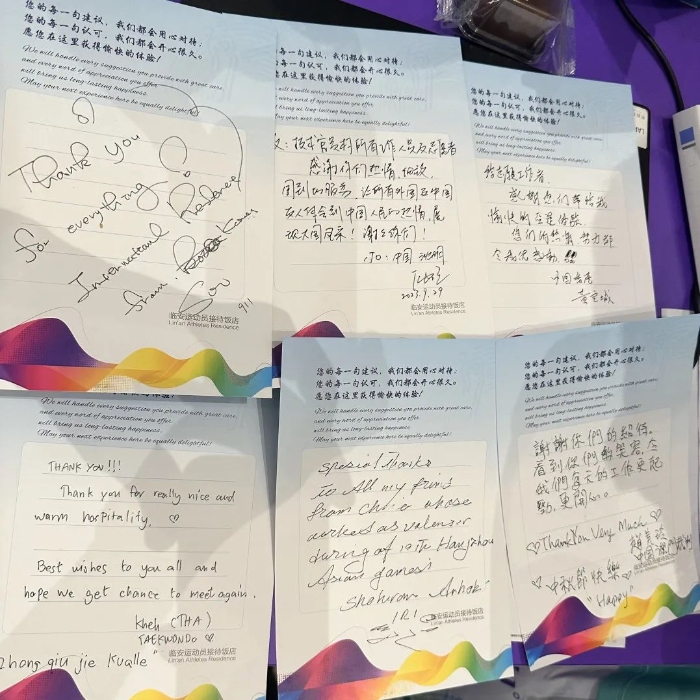 您的每一句建议，我们都会用心对待；
您的每一句认可，我们都会开心很久。
愿您在这里获得愉快的体验！
We will handle every suggestion you provide with great care,
and every word of appreciation you offer
will bring us long-lasting happiness.
May your next experience here be equally delightful!
Thank you
for everything
International Referee
from
Korea
临安运动员接待饭店
Lin'an Athletes Residence
的每一句建议，我们都会用心对待；
的每一句认可，我们都会开心很久。
您在这里获得愉快的体验！
will handle every suggestion you provide with great care,
and every word of appreciation you offer
will bring us long-lasting happiness.
May your next experience here be equally delightful!
技术官员村所有工作人员及志愿者
感谢你们热情、
周到的服务，让所有外国及中国
友人体会到中国人民的热情，展
现大国风采！谢谢你们！
中国
2023.9.29
临安运动员接待饭店
Lin'an Athletes Residence
您的每一句建议，我们都会用心对待；
您的每一句认可，我们都会开心很久。
愿您在这里获得愉快的体验！
We will handle every suggestion you provide with great care,
and every word of appreciation you offer
will bring us long-lasting happiness.
May your next experience here be equally delightful!
工作者，
愉快的
您们的
令我
中国香港
临安运动员接待饭店
Lin'an Athletes Residence
We will handle every suggestion you provide with great care,
and every word of appreciation you offer
will bring us long-lasting happiness.
May your next experience here be equally delightful!
THANK YOU!!!
Thank you for really nice and
warm hospitality. ♡
Best wishes to you all and
hope we get chance to meet again.
Kheh (THA)
TAEKWONDO ♡
"Zhong qiu jie Kualle"
临安运动员接待饭店
Lin'an Athletes Residence
您的每一句建议，我们都会用心对待；
您的每一句认可，我们都会开心很久。
愿您在这里获得愉快的体验！
We will handle every suggestion you provide with great care,
and every word of appreciation you offer
will bring us long-lasting happiness.
May your next experience here be equally delightful!
Special Thanks
To All my
from
as
of 19Th Hangzhou
Asian games
IRI
临安运动员接待饭店
Lin'an Athletes Residence
您的每一句建议，我们都会用心对待；
您的每一句认可，我们都会开心很久。
愿您在这里获得愉快的体验！
We will handle every suggestion you provide with great care,
and every word of appreciation you offer
will bring us long-lasting happiness.
May your next experience here be equally delightful!
謝謝你們的招待，
看到你們的笑容，令
我們每天的工作更起
勁，更開心。
♡ThankYou Very Much♡
♡中秋節快樂♡
中國澳門
"Happy"